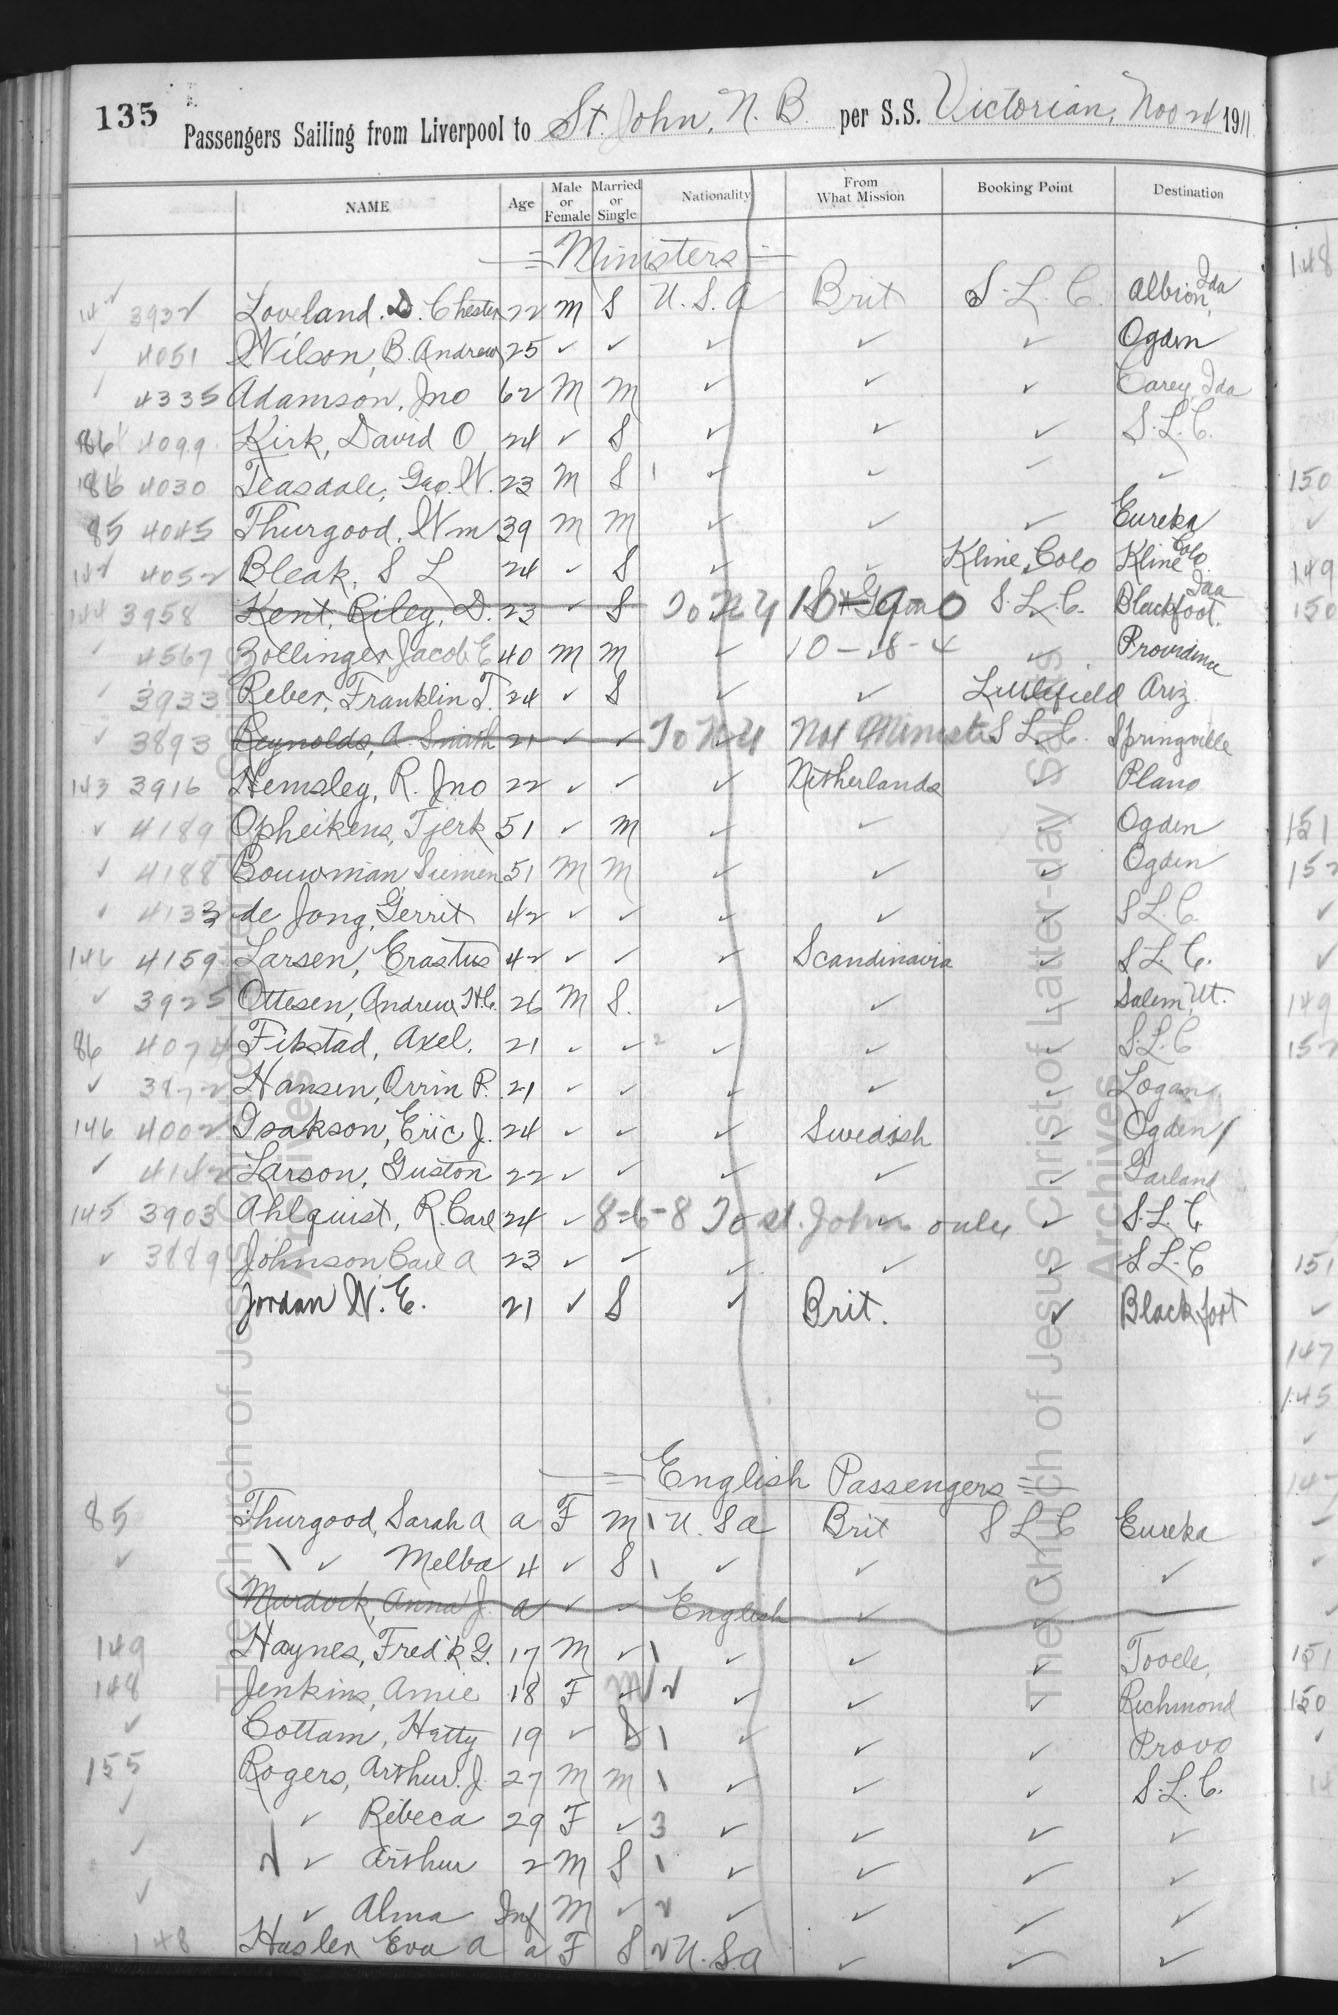 135 Passengers Sailing from Liverpool to St. John, N. B. per S.S. Victorian, Nov 24 1911
NAME Age Male or Female Married or Single Nationality From What Mission Booking Point Destination
= Ministers =
14 ✓ 3932 Loveland. D. Chester 22 M S U.S.A Brit S.L.C. Albion, Ida
✓ 4051 Wilson, B. Andrew 25 ✓ ✓ ✓ ✓ ✓ Ogden
✓ 4335 Adamson, Jno 62 M M ✓ ✓ ✓ Carey, Ida
86 4099 Kirk, David O 24 ✓ S ✓ ✓ ✓ S.L.C.
86 4030 Teasdale, Geo. W. 23 M S 1 ✓ ✓ ✓ ✓
85 4045 Thurgood, Wm 39 M M ✓ ✓ ✓ Eureka
142 4052 Bleak, S L 24 ✓ S ✓ ✓ Kline, Colo Kline Colo.
144 3958 Kent, Riley, D. 23 ✓ S To N Y 10-9-0 S.L.C. Blackfoot, Ida
✓ 4567 Zollinger, Jacob E 40 M M ✓ 10-8-4 ✓ Providence
✓ 3933 Reber, Franklin T. 24 ✓ S ✓ ✓ Littlefield Ariz.
✓ 3893 Reynolds, A. Smith 21 ✓ ✓ To N Y Not Minister S L C. Springville
143 3916 Hemsley, R. Jno 22 ✓ ✓ ✓ Netherlands ✓ Plano
✓ 4189 Opheikens, Tjerk 51 ✓ M ✓ ✓ ✓ Ogden
✓ 4188 Bouwman, Siemen 51 M M ✓ ✓ Ogden
✓ 4133 de Jong, Gerrit 42 ✓ ✓ ✓ ✓ ✓ S L C.
146 4159 Larsen, Erastus 42 ✓ ✓ ✓ Scandinavia ✓ S.L.C.
✓ 3925 Ottesen, Andrew H.C. 26 M S. ✓ ✓ ✓ Salem, Ut.
86 4074 Fikstad, Axel. 21 ✓ ✓ 2 ✓ ✓ ✓ S.L.C
✓ 3872 Hansen, Orrin P. 21 ✓ ✓ ✓ ✓ ✓ Logan
146 4002 Isakson, Eric J. 24 ✓ ✓ ✓ Swedish ✓ Ogden
✓ 4142 Larson, Guston 22 ✓ ✓ ✓ ✓ ✓ Garland
145 3903 Ahlquist, R. Carl 24 ✓ 8-6-8 To st. John only ✓ S.L.C
✓ 3889 Johnson Carl A 23 ✓ ✓ ✓ ✓ ✓ S L.C
Jordan W. E. 21 ✓ S ✓ Brit. ✓ Blackfoot
= English Passengers =
85 Thurgood, Sarah A a F M 1 U.S.A Brit S L C Eureka
✓ \ ✓ Melba 4 ✓ S 1 ✓ ✓ ✓ ✓
Murdock, Anna J. a ✓ ✓ English ✓ ✓
149 Haynes, Fred'k G. 17 M ✓ 1 ✓ ✓ ✓ Tooele,
148 Jenkins, Amie 18 F ✓ ✓ ✓ ✓ Richmond
✓ Cottam, Hetty 19 ✓ S 1 ✓ ✓ ✓ Provo
155 Rogers, Arthur. J. 27 M M 1 ✓ ✓ ✓ S.L.C.
✓ ✓ Rebeca 29 F ✓ 3 ✓ ✓ ✓ ✓
✓ ✓ Arthur 2 M S 1 ✓ ✓ ✓ ✓
✓ ✓ Alma Inf M ✓ 2 ✓ ✓ ✓ ✓
148 Hasler Eva A a F S 2 U.S.A ✓ ✓ ✓
The Church of Jesus Christ of Latter-day Saints
Archives
148
150
✓
149
150
151
152
✓
✓
149
152
151
✓
147
145
✓
✓
✓
151
150